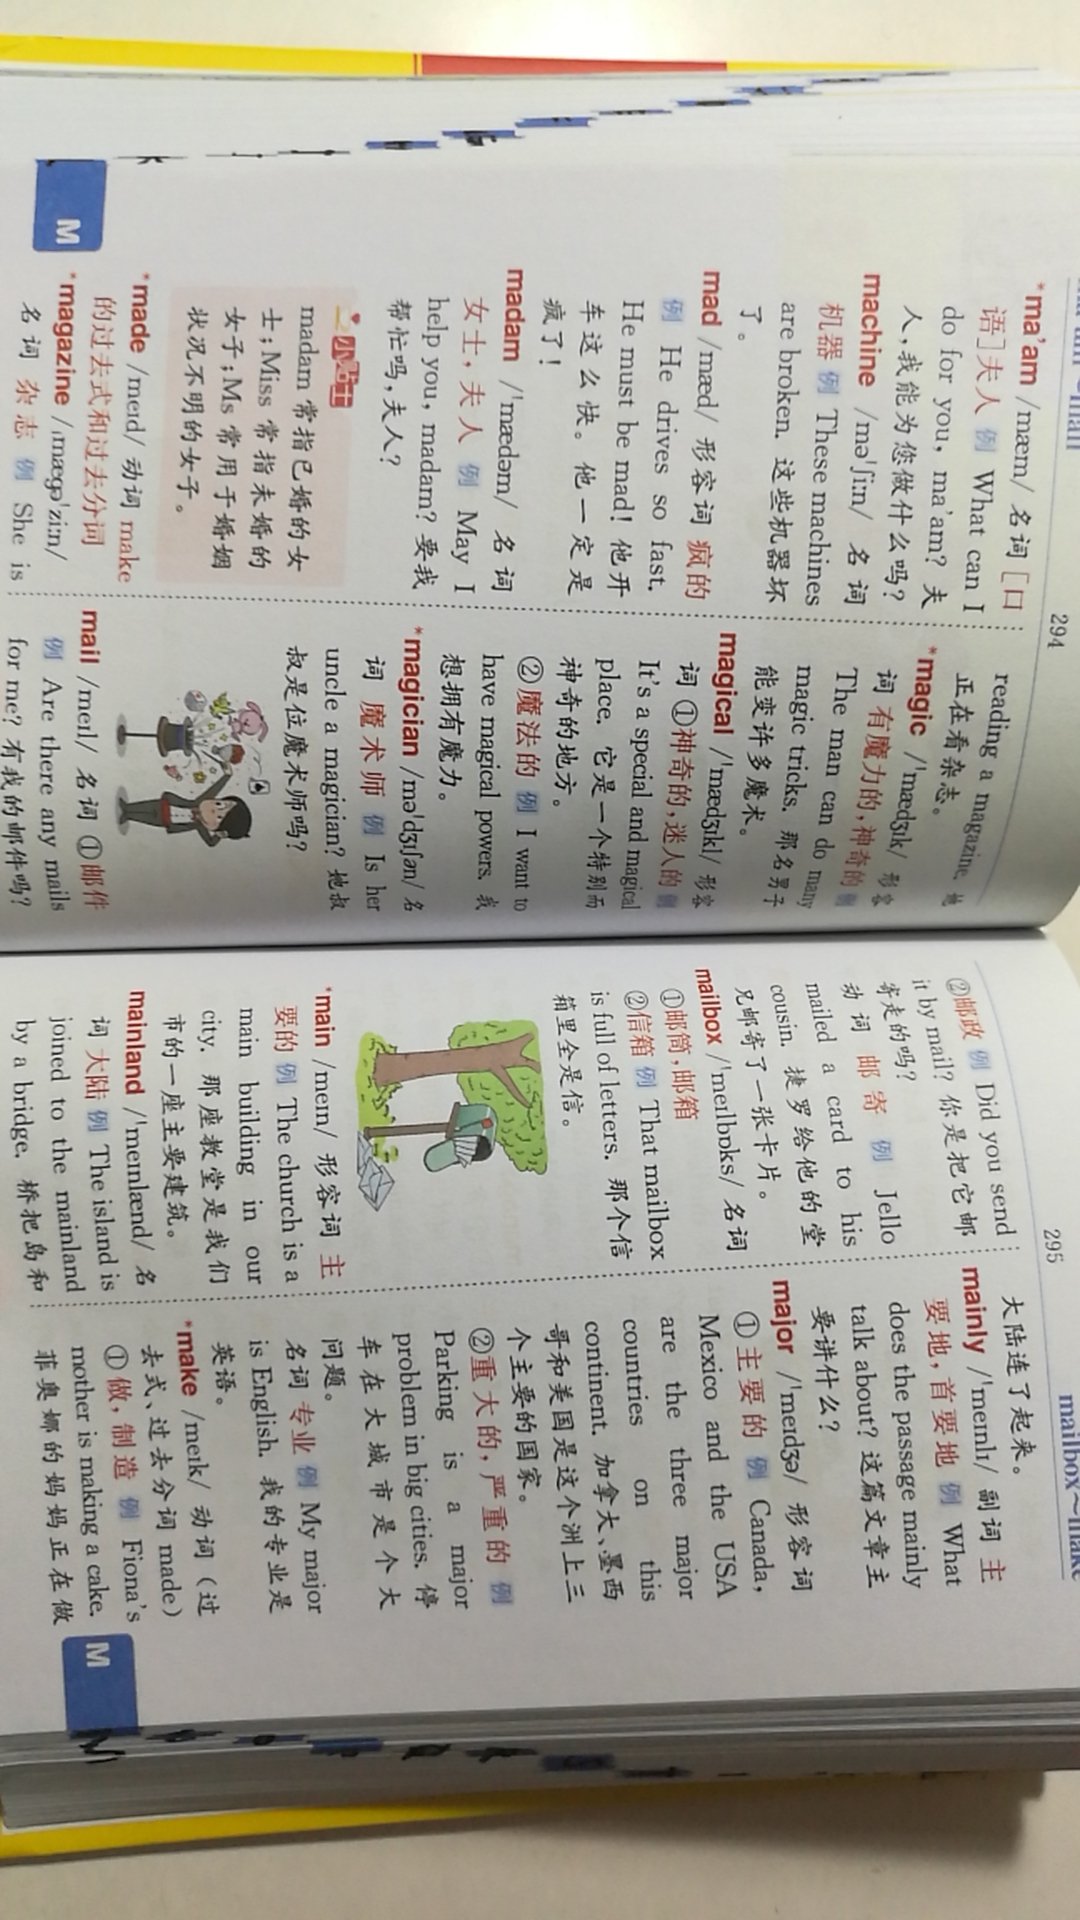 294
*ma'am /mæm/ 名词 [口
语]夫人 例 What can I
do for you, ma'am? 夫
人,我能为您做什么吗?
machine /məˈʃiːn/ 名词
机器 例 These machines
are broken. 这些机器坏
了。
mad /mæd/ 形容词 疯的
例 He drives so fast.
He must be mad! 他开
车这么快。他一定是
疯了!
madam /ˈmædəm/ 名词
女士,夫人 例 May I
help you, madam? 要我
帮忙吗,夫人?
madam 常指已婚的女
士;Miss 常指未婚的
女子;Ms 常用于婚姻
状况不明的女子。
*made /meɪd/ 动词 make
的过去式和过去分词
*magazine /ˌmæɡəˈziːn/
名词 杂志 例 She is
M
reading a magazine. 她
正在看杂志。
*magic /ˈmædʒɪk/ 形容
词 有魔力的,神奇的 例
The man can do many
magic tricks. 那名男子
能变许多魔术。
magical /ˈmædʒɪkl/ 形容
词 ①神奇的,迷人的 例
It's a special and magical
place. 它是一个特别而
神奇的地方。
②魔法的 例 I want to
have magical powers. 我
想拥有魔力。
*magician /məˈdʒɪʃən/ 名
词 魔术师 例 Is her
uncle a magician? 她叔
叔是位魔术师吗?
mail /meɪl/ 名词 ①邮件
例 Are there any mails
for me? 有我的邮件吗?
295
mailbox~make
②邮政 例 Did you send
it by mail? 你是把它邮
寄走的吗?
动词 邮寄 例 Jello
mailed a card to his
cousin. 捷罗给他的堂
兄邮寄了一张卡片。
mailbox /ˈmeɪlbɒks/ 名词
①邮筒,邮箱
②信箱 例 That mailbox
is full of letters. 那个信
箱里全是信。
*main /meɪn/ 形容词 主
要的 例 The church is a
main building in our
city. 那座教堂是我们
市的一座主要建筑。
mainland /ˈmeɪnlænd/ 名
词 大陆 例 The island is
joined to the mainland
by a bridge. 桥把岛和
大陆连了起来。
mainly /ˈmeɪnlɪ/ 副词 主
要地,首要地 例 What
does the passage mainly
talk about? 这篇文章主
要讲什么?
major /ˈmeɪdʒə/ 形容词
①主要的 例 Canada,
Mexico and the USA
are the three major
countries on this
continent. 加拿大、墨西
哥和美国是这个洲上三
个主要的国家。
②重大的,严重的 例
Parking is a major
problem in big cities. 停
车在大城市是个大
问题。
名词 专业 例 My major
is English. 我的专业是
英语。
*make /meɪk/ 动词 (过
去式、过去分词 made)
①做,制造 例 Fiona's
mother is making a cake.
菲奥娜的妈妈正在做
M